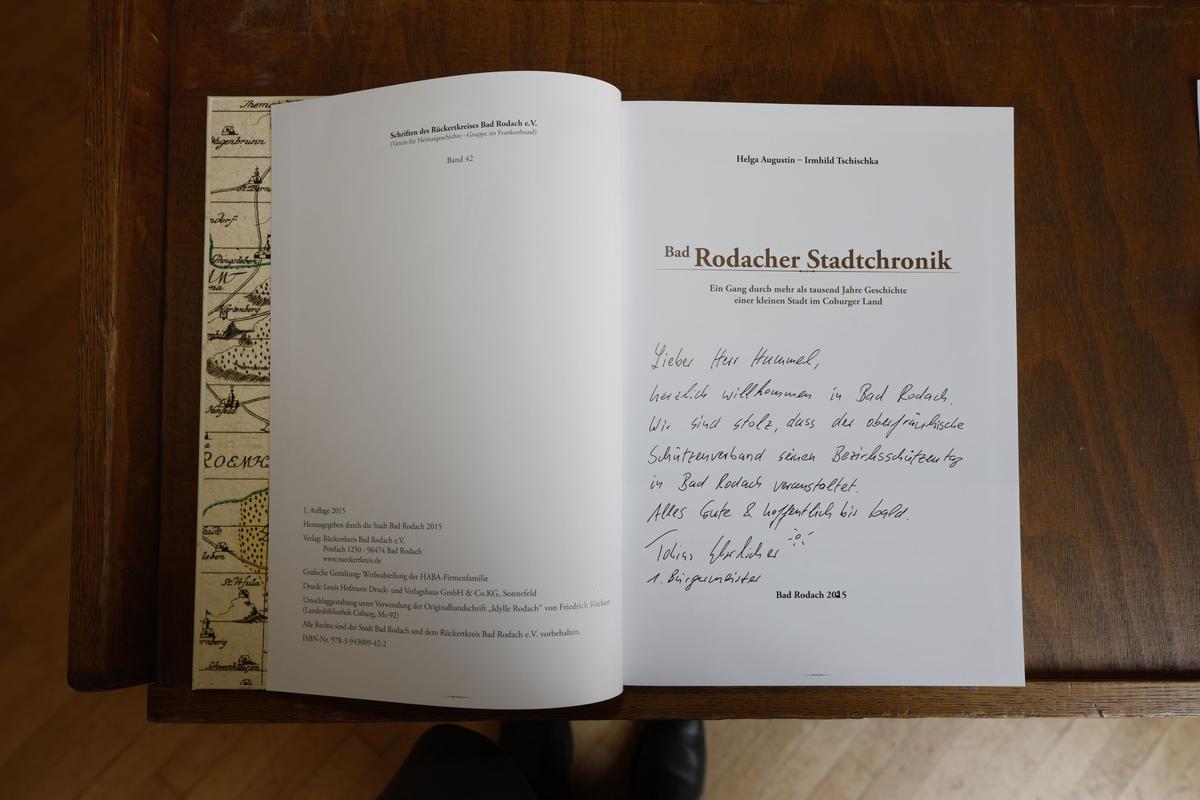 Wagenbrunn
Dingsleben
ROEMH
St. Ursula
Schriften des Rückertkreises Bad Rodach e.V.
(Verein für Heimatgeschichte - Gruppe im Frankenbund)
Band 42
1. Auflage 2015
Herausgegeben durch die Stadt Bad Rodach 2015
Verlag: Rückertkreis Bad Rodach e.V.
Postfach 1250 - 96474 Bad Rodach
www.rueckertkreis.de
Grafische Gestaltung: Werbeabteilung der HABA-Firmenfamilie
Druck: Louis Hofmann Druck- und Verlagshaus GmbH & Co.KG, Sonnefeld
Umschlaggestaltung unter Verwendung der Originalhandschrift „Idylle Rodach“ von Friedrich Rückert
(Landesbibliothek Coburg, Ms-92)
Alle Rechte sind der Stadt Bad Rodach und dem Rückertkreis Bad Rodach e.V. vorbehalten.
ISBN-Nr. 978-3-943009-42-2
Helga Augustin – Irmhild Tschischka
Bad Rodacher Stadtchronik
Ein Gang durch mehr als tausend Jahre Geschichte
einer kleinen Stadt im Coburger Land
Lieber Herr Hummel,
herzlich willkommen in Bad Rodach.
Wir sind stolz, dass der oberfränkische
Schützenverband seinen Bezirksschützentag
in Bad Rodach veranstaltet.
Alles Gute & hoffentlich bis bald.
Tobias Ehrlicher
1. Bürgermeister
Bad Rodach